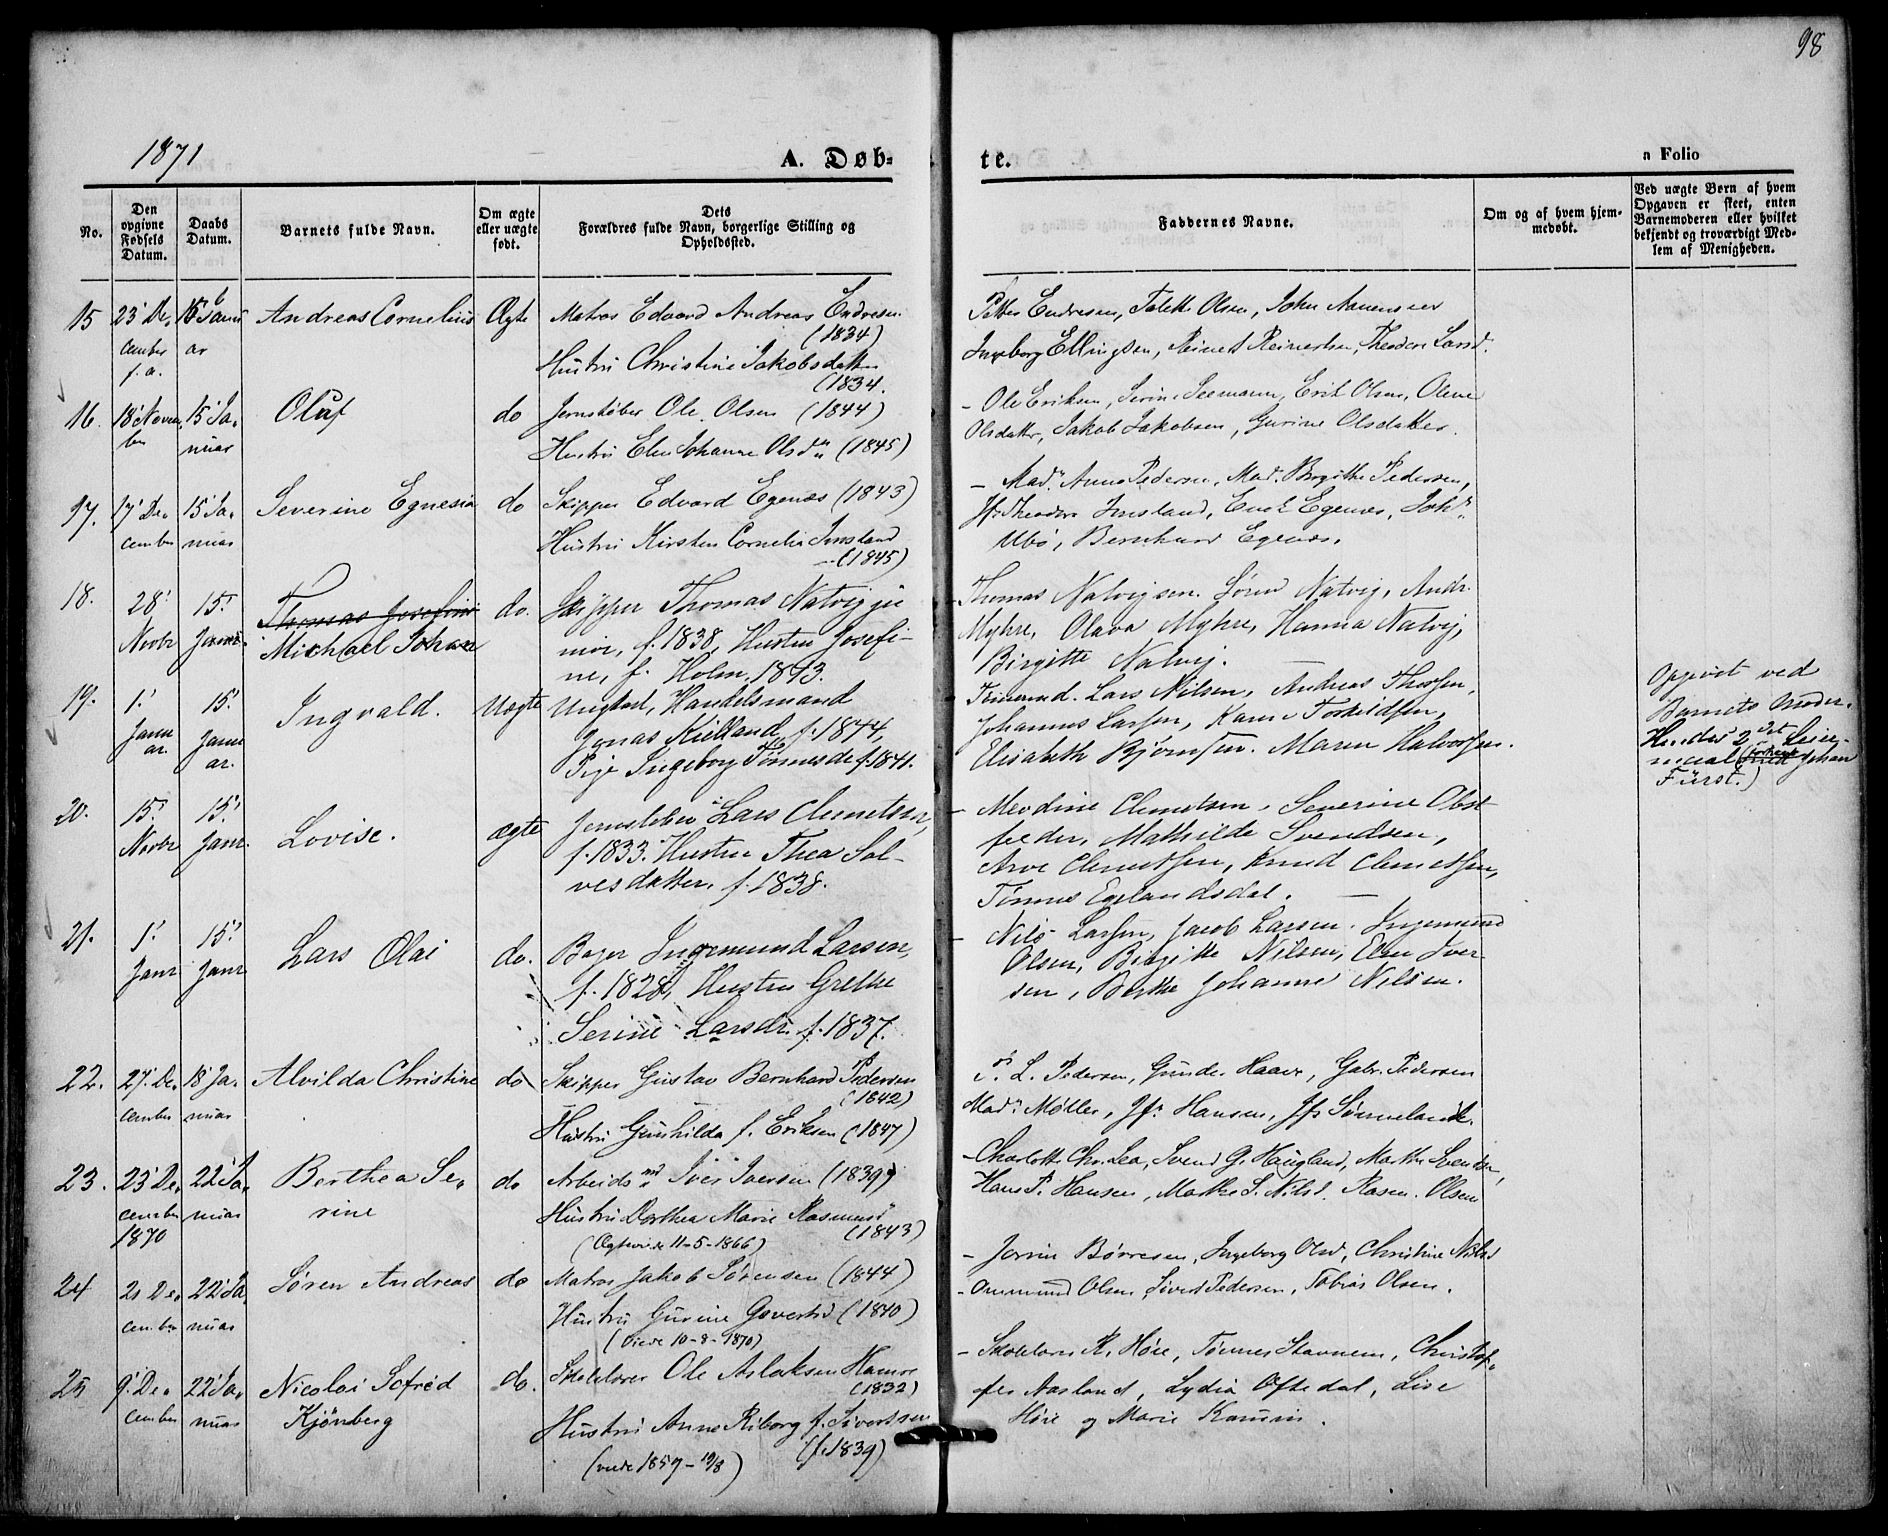 98
1871
A. Døb-
te.
n Folio
No.
Den opgivne Fødsels Datum.
Daabs Datum.
Barnets fulde Navn.
Om ægte eller uægte født.
Dets
Forældres fulde Navn, borgerlige Stilling og
Opholdssted.
Faddernes Navne.
Om og af hvem hjem-
medøbt.
Ved uægte Børn af hvem
Opgaven er skeet, enten
Barnemoderen eller hvilket
bekjendt og troværdigt Med-
lem af Menigheden.
15 23' De- Janu Andreas Cornelius Ægte Matros Edvard Andreas Endresen
cember ar (1834)
f. a. Hustru Christine Jakobsdatter
(1834.
Endresen, Olsen, John
Ingeborg Ellingsen, Reinert Reinertsen, Theodore Larsd.
16. 18' Novem 15' Ja- Oluf do Jernstøber Ole Olsen (1844)
ber nuar Hustru Elen Johanne Olsd. (1845)
- Ole Eriksen, Serine Seemann, Erik Olsen, Olene
Olsdatter, Jakob Jakobsen, Gurine Olsdatter.
17. 17' De- 15' Ja- Severine Egnesia do Skipper Edvard Egenæs (1843)
cember nuar Hustru Kirsten Cornelia Imsland
(1845)
- Mad. Anna Pedersen, Mad. Birgithe Pedersen,
Jfr. Theodora Imsland, Egenæs, Joh.
Ubø, Bernhard Egenæs.
18. 28' 15' Thomas Josefine do. Skipper Thomas Natvig ju
Novbr Janr. Michael Johan nior, f. 1838, Hustru Josefi-
ne, f. Holm. 1843.
Thomas Natvigsen. Søren Natvig, Andr.
Myhre, Olava Myhre, Hanna Natvig,
Birgitte Natvig.
19. 1' 15' Ingvald. Uægte Ungkarl, Handelsmand
Janu Janu Jonas Kielland, f. 1844,
ar. ar. Pige Ingeborg Tønnesdr f. 1841.
Lars Nilsen, Andreas Thorsen,
Johannes Larsen, Karen Torkildsen,
Elisabeth Bjørnsen. Maren Halvorsen.
Opgivet ved
Barnets Moder.
Hendes 2det Leier-
maal ( Johan
Fürst.)
20. 15' 15' Lovise. ægte Jernstøber Lars Clemetsen,
Novbr Janr. f. 1833. Hustru Thea Sal-
vesdatter, f. 1838.
- Clemetsen, Severine Obst-
felder, Mathilde Svendsen,
Arve Clemetsen, Knud Clemetsen,
Tønnes Egelandsdal.
21. 1' 15' Lars Olai do. Bager Ingemund Larsen,
Janr Janr f. 1828, Hustru Grethe
Serine Larsdr. f. 1837.
- Nils Larsen, Jacob Larsen. Ingemund
Olsen, Birgitte Nilsen, Elen Iver-
sen, Berthe Johanne Nilsen.
22. 27' De- 18' Ja- Alvilda Christine do Skipper Gustav Bernhard Pedersen
cember nuar (1842)
Hustru Gunhilda f. Eriksen (1847)
L. Pedersen, Gunder Haave, Gabr. Pedersen
Mad. Møller, Jfr. Hansen, Jfr Sømmeland.
23. 23' De- 22' Ja- Berthea Se- do Arbeidsmd Iver Iversen (1839)
cember nuar rine Hustru Dorthea Marie Rasmusd
1870 (1843)
(Ægtevi.. 11-5-1866)
- Charlotte Chr. Lea, Svend G. Haugland, Marthe Svendsen,
Hans P. Hansen, Marthe S. Nilsd. Rasm. Olsen
24 21 De- 22' Ja- Søren Andreas do Matros Jakob Sørensen (1844)
cember nuar Hustru Gurine Govertsd (1840)
(Viede 10-8-1870)
- Børresen, Ingeborg Olsd, Christine Nilsd
- Ommund Olsen, Sivert Pedersen, Tobias Olsen.
25 9' De- 22' Ja- Nicolai Sofred do. Skolelærer Ole Aslaksen Hamre
cember nuar Kjønberg (1832)
Hustru Anne Riborg f. Sivertsen
(f. 1839)
(viede 1859 - 10/8)
- Skolelærer R. Høie, Tønnes Stavnem, Christof-
fer Aasland, Lydia Oftedal, Lise
Høie og Marie